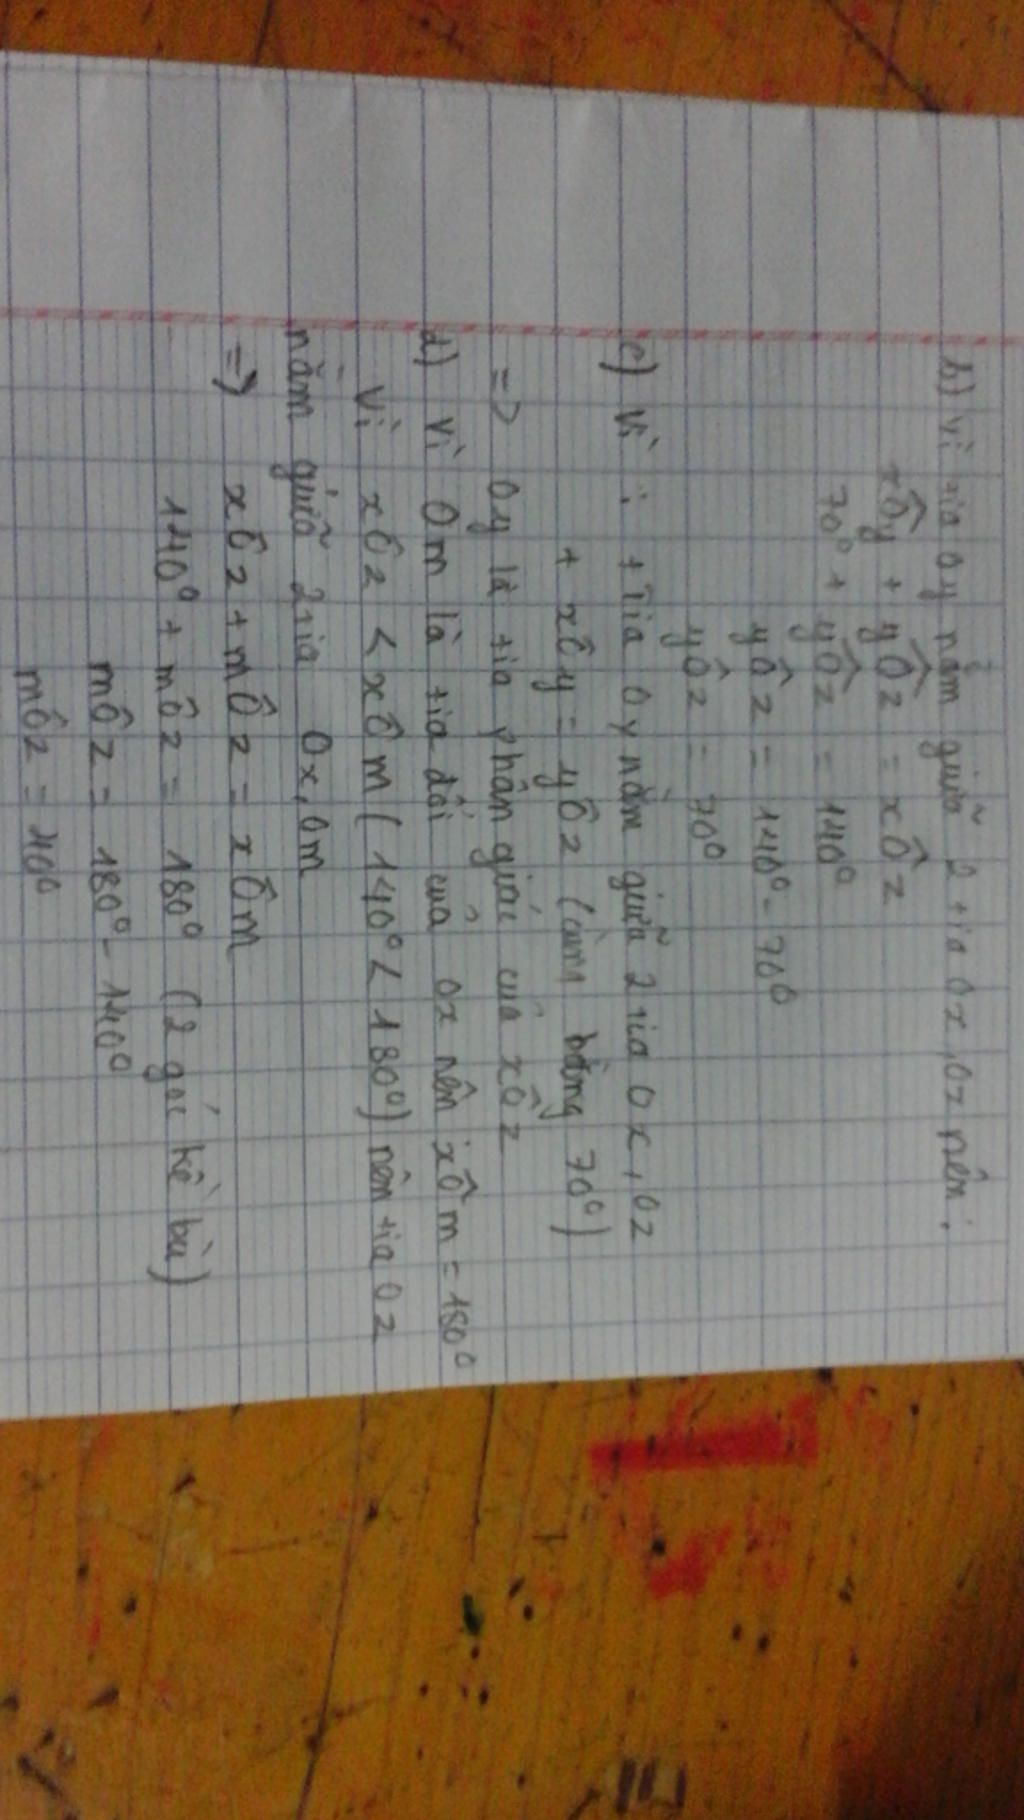 b) Vì tia Oy nằm giữa 2 tia Ox, Oz nên:
xÔy + yÔz = xÔz
70° + yÔz = 140°
yÔz = 140° - 70°
yÔz = 70°
c) Vì : + Tia Oy nằm giữa 2 tia Ox, Oz
+ xÔy = yÔz (cùng bằng 70°)
=> Oy là tia phân giác của xÔz
d) Vì Om là tia đối của Ox nên xÔm = 180°
Vì xÔz < xÔm (140° < 180°) nên tia Oz
nằm giữa 2 tia Ox, Om
=> xÔz + mÔz = xÔm
140° + mÔz = 180° (2 góc kề bù)
mÔz = 180° - 140°
mÔz = 40°